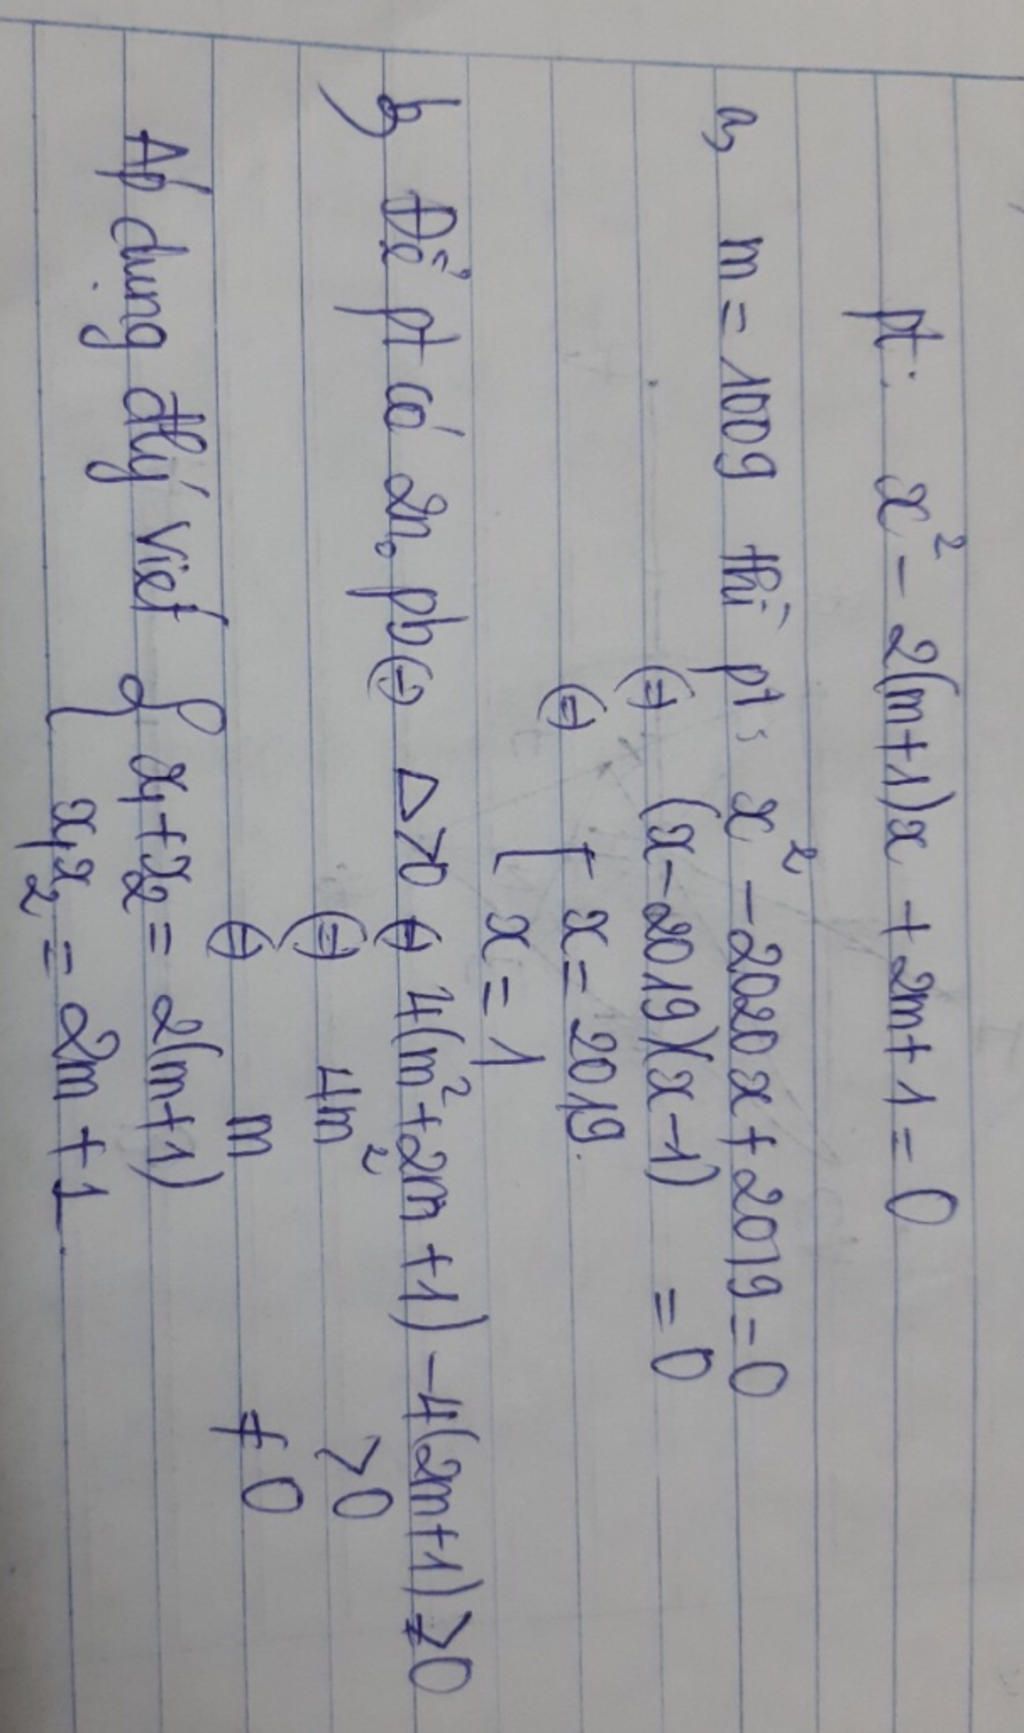 pt: x² - 2(m+1)x + 2m+1 = 0
a, m = 1009 thì pt: x² - 2020x + 2019 = 0
⇔ (x - 2019)(x - 1) = 0
⇔ [ x = 2019
x = 1
b, Để pt có 2n₀ pb ⇔ Δ > 0 ⇔ 4(m² + 2m + 1) - 4(2m+1) > 0
⇔ 4m² > 0
⇔ m ≠ 0
Áp dụng đlý Viet { x₁ + x₂ = 2(m+1)
x₁x₂ = 2m + 1